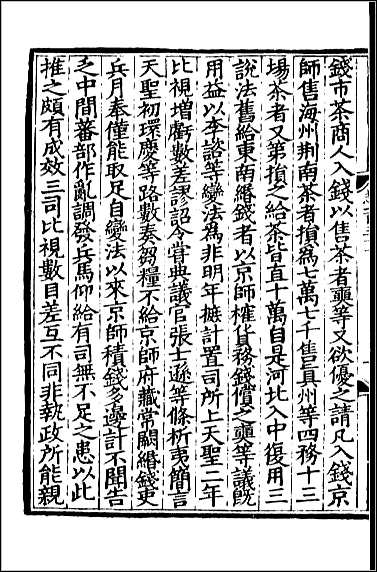 錢市茶商人入錢以售茶者奭等又欲優之請凡入錢京
師售海州荆南茶者損爲七萬七千售真州等四務十三
塲茶者又第損之給茶皆直十萬自是河北入中復用三
說法舊給東南緡錢者以京師榷貨務錢償之奭等議旣
用益以李諮等變法爲非明年摭計置司所上天聖二年
比視增虧數差謬詔令甞典議官張士遜等條析夷簡言
天聖初環慶等路數奏芻糧不給京師府藏常闕緡錢吏
兵月奉僅能取足自變法以來京師積錢多邊計不聞告
乏中閒蕃部作亂調發兵馬仰給有司無不足之患以此
推之頗有成效三司比視數目差互不同非執政所能親